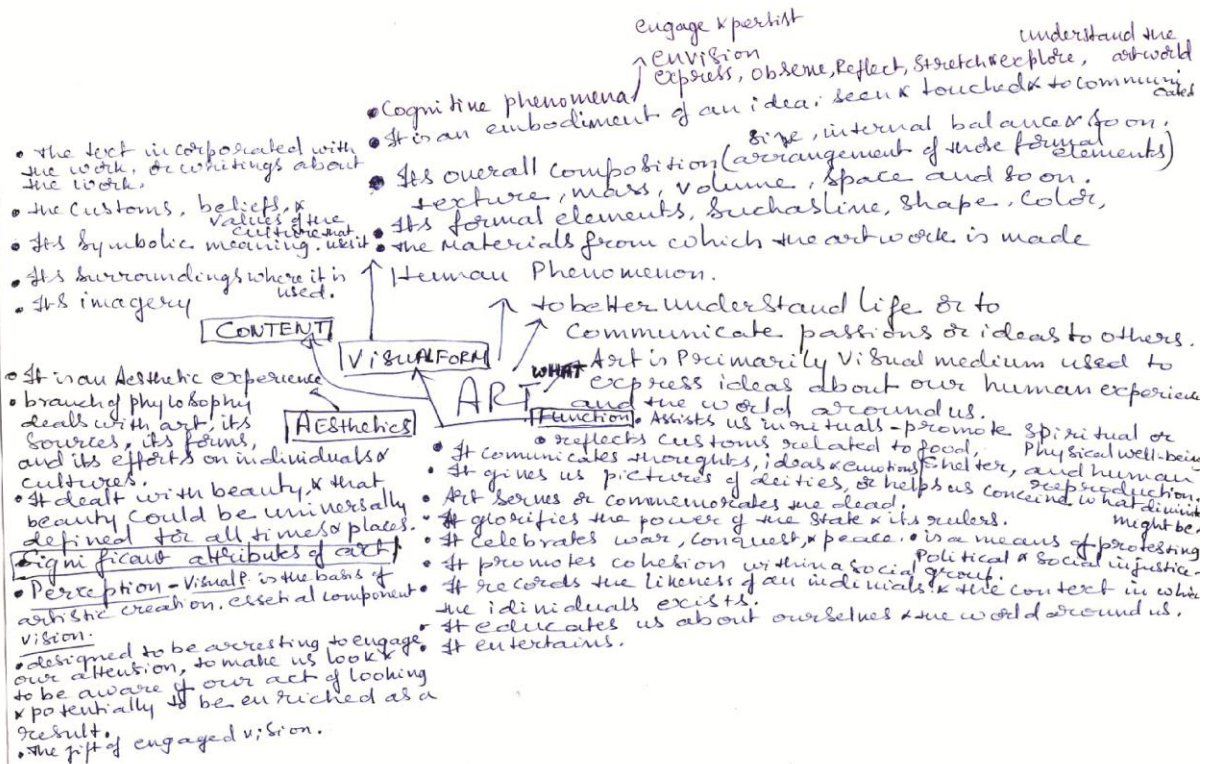 engage & persist
envision
express, Observe, Reflect, Stretch & explore, understand the artworld
• Cognitive phenomena
• It is an embodiment of an idea; seen & touched & to communicated
size, internal balance & so on.
• Its overall composition (arrangement of those formal elements)
texture, mass, volume, space and so on.
• Its formal elements, such as line, shape, color,
• the Materials from which the artwork is made
Human Phenomenon.
• the text incorporated with
the work, or writings about
the work.
• the customs, beliefs, &
values of the
culture that
• Its symbolic meaning. use it
• Its surroundings where it is
used.
• Its imagery
CONTENT
VISUAL FORM
to better understand life or to
communicate passions or ideas to others.
ART
WHAT
Art is Primarily Visual medium used to
express ideas about our human experience
and the world around us.
AEsthetics
• It is an Aesthetic experience
• branch of phylosophy
deals with art, its
sources, its forms,
and its efforts on individuals &
cultures.
• It dealt with beauty, & that
beauty could be universally
defined for all times & places.
Significant attributes of art
• Perception - Visual P. is the basis of
artistic creation. essetial component
vision.
• designed to be arresting to engage
our attension, to make us look &
to be aware of our act of looking
& potentially to be enriched as a
result.
• The gift of engaged vision.
Function
• Assists us in rituals - promote spiritual or
Physical well-being
• reflects customs related to food,
shelter, and human
reproduction.
• It comunicates thoughts, ideas & emotions
• It gives us pictures of deities, or helps us conceive what divinity
might be.
• Art serves or commemorates the dead.
• It glorifies the power of the State & its rulers.
• It celebrates war, conquest, & peace.
• is a means of protesting
Political & Social injustice.
• It promotes cohesion within a social group.
• It records the likeness of an indiniials & the context in which
the idiniduals exists.
• It educates us about ourselves & the world around us.
• It entertains.